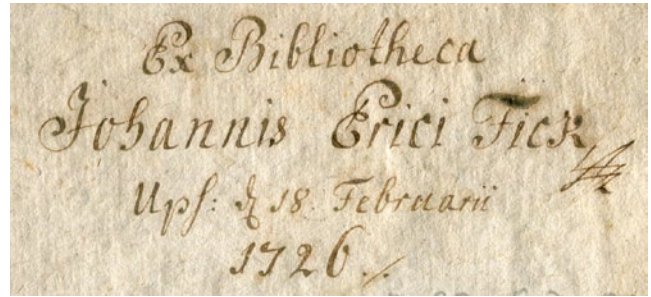 Ex Bibliotheca
Johannis Erici Fick
Ups: d 18. Februarii
1726.